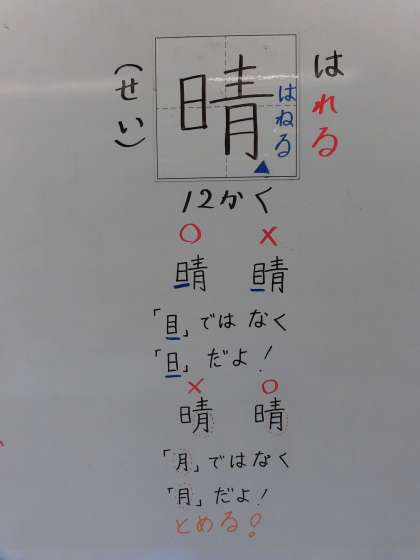 はれる
晴
はねる
(せい)
12かく
○ ×
晴 晴
「目」ではなく
「日」だよ!
× ○
晴 晴
「月」ではなく
「月」だよ!
とめる!